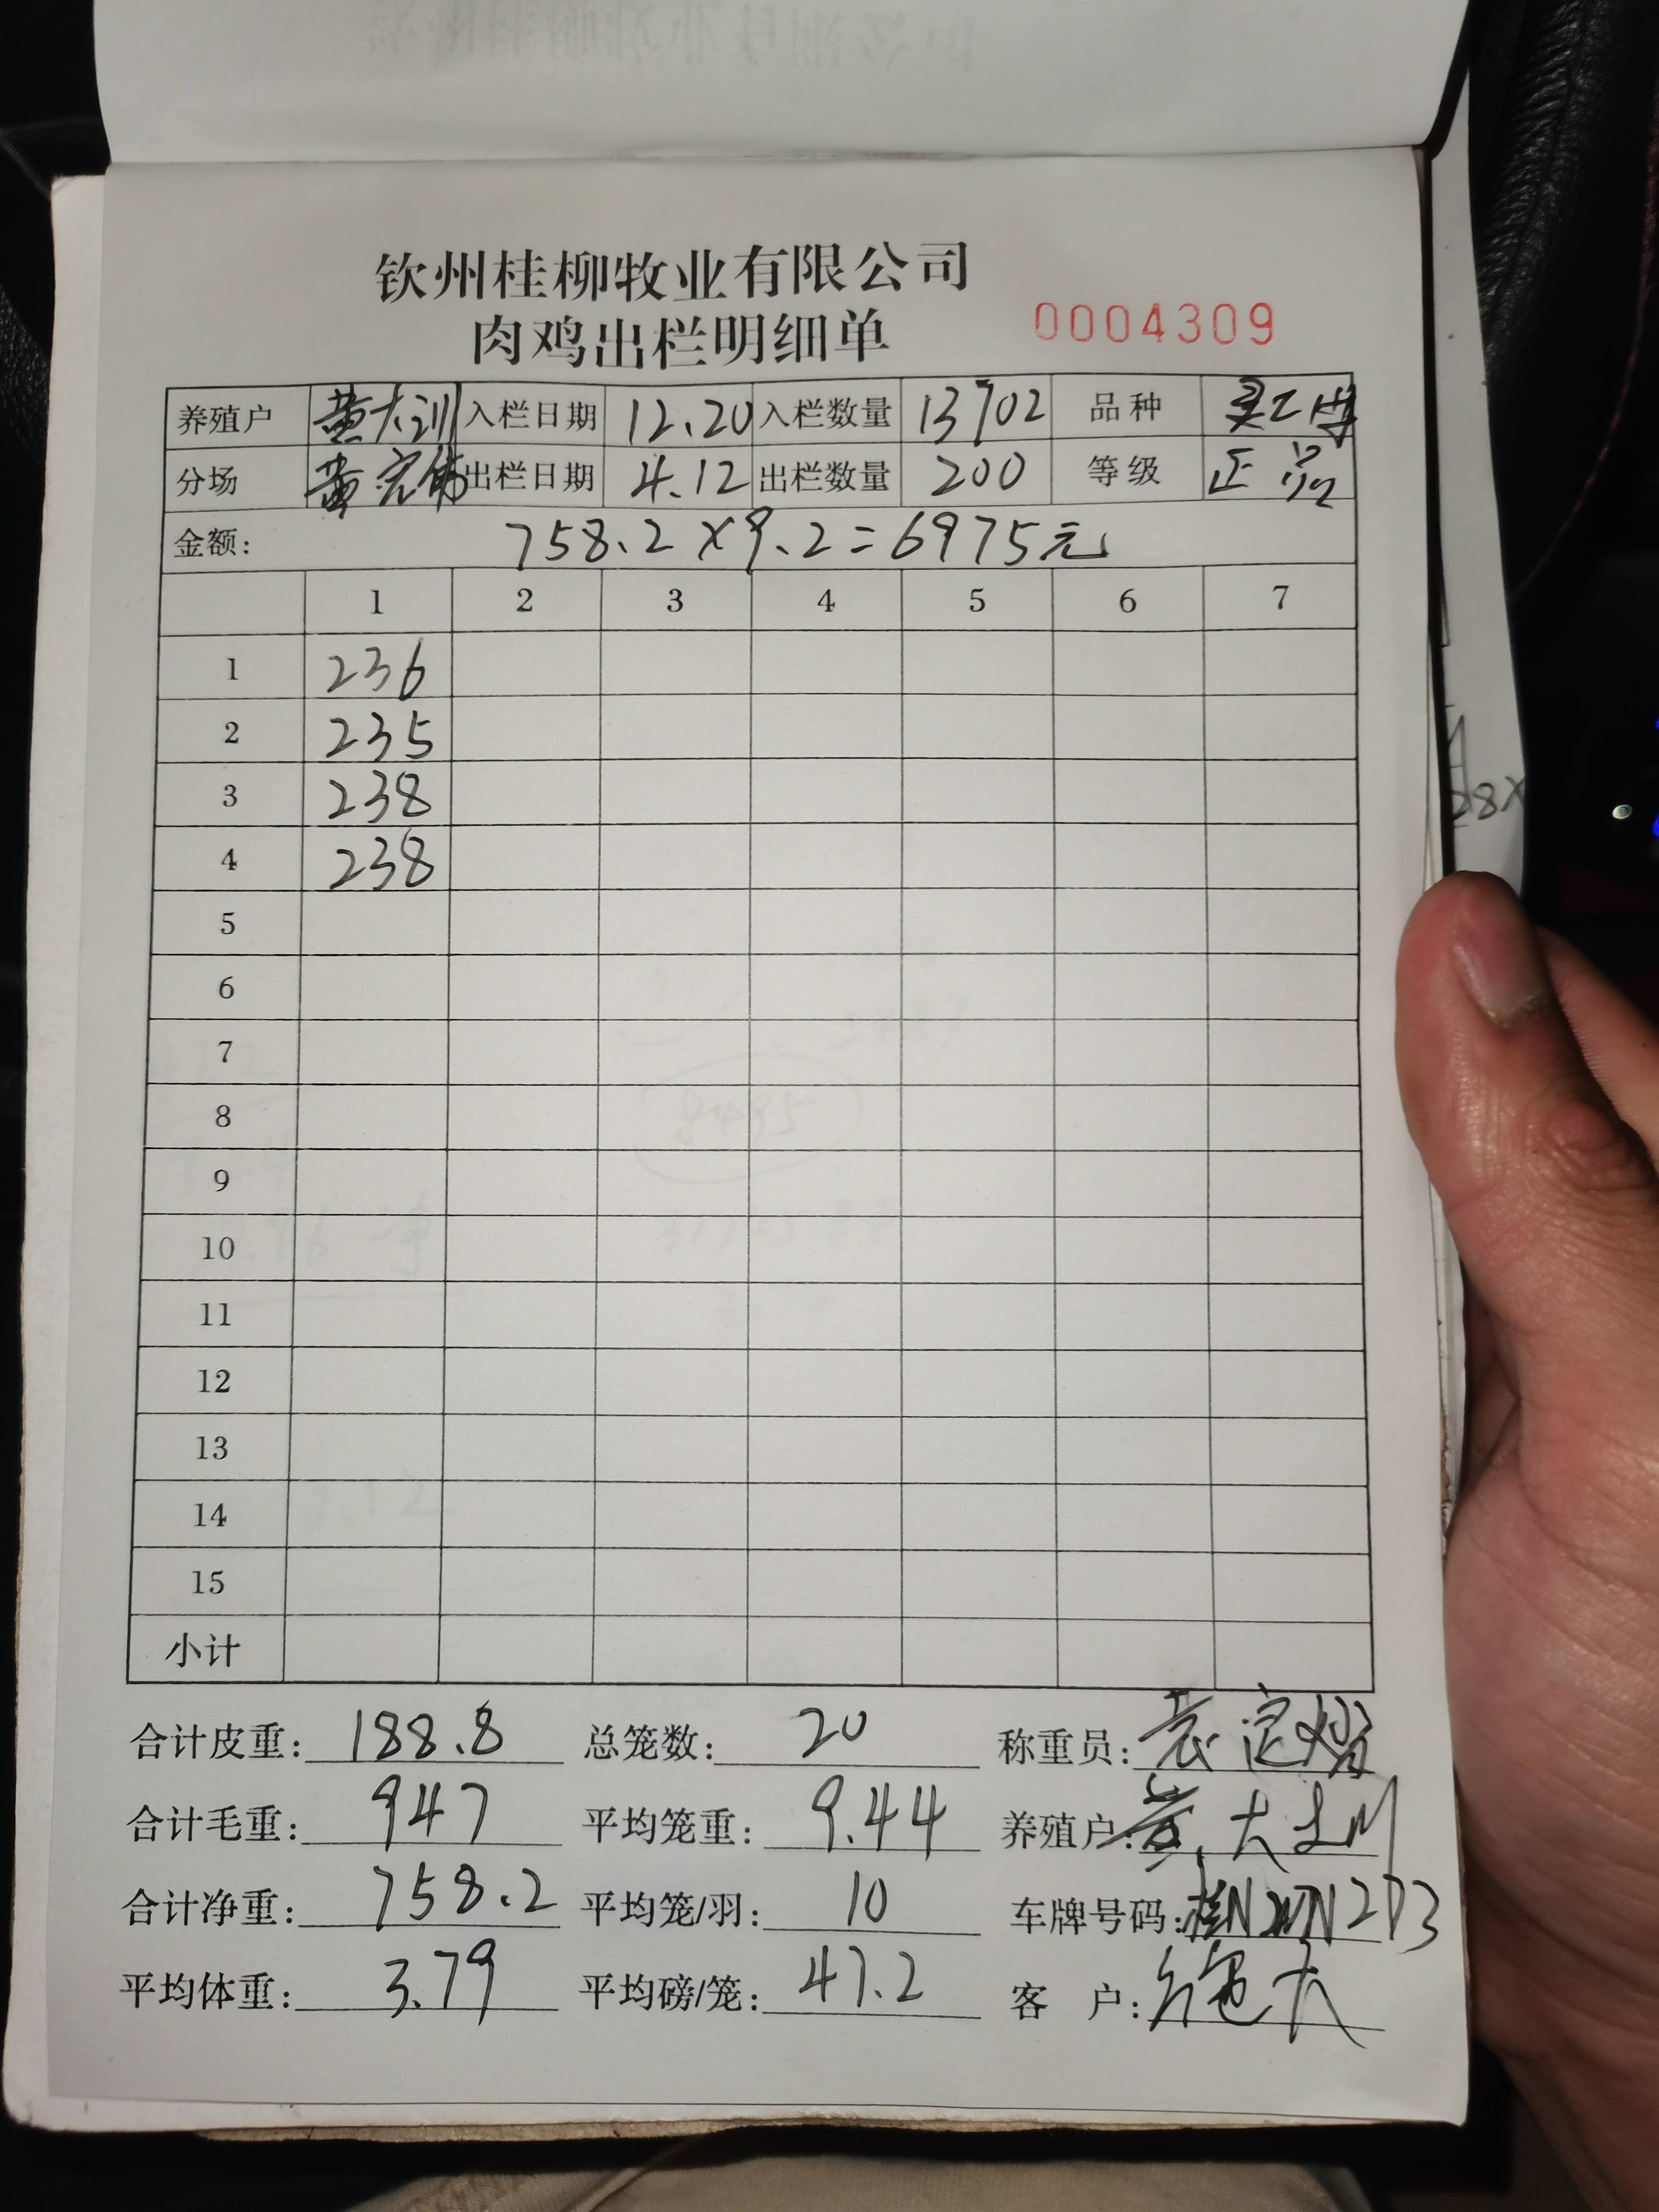 钦州桂柳牧业有限公司
肉鸡出栏明细单 0004309
养殖户 黄大训 入栏日期 12.20 入栏数量 13702 品种
分场 黄宏伟 出栏日期 4.12 出栏数量 200 等级 正品
金额: 758.2×9.2=6975元
1 2 3 4 5 6 7
1 236
2 235
3 238
4 238
5
6
7
8
9
10
11
12
13
14
15
小计
合计皮重: 188.8 总笼数: 20 称重员:
合计毛重: 947 平均笼重: 9.44 养殖户: 黄大训
合计净重: 758.2 平均笼/羽: 10 车牌号码:
平均体重: 3.79 平均磅/笼: 47.2 客 户:
28×